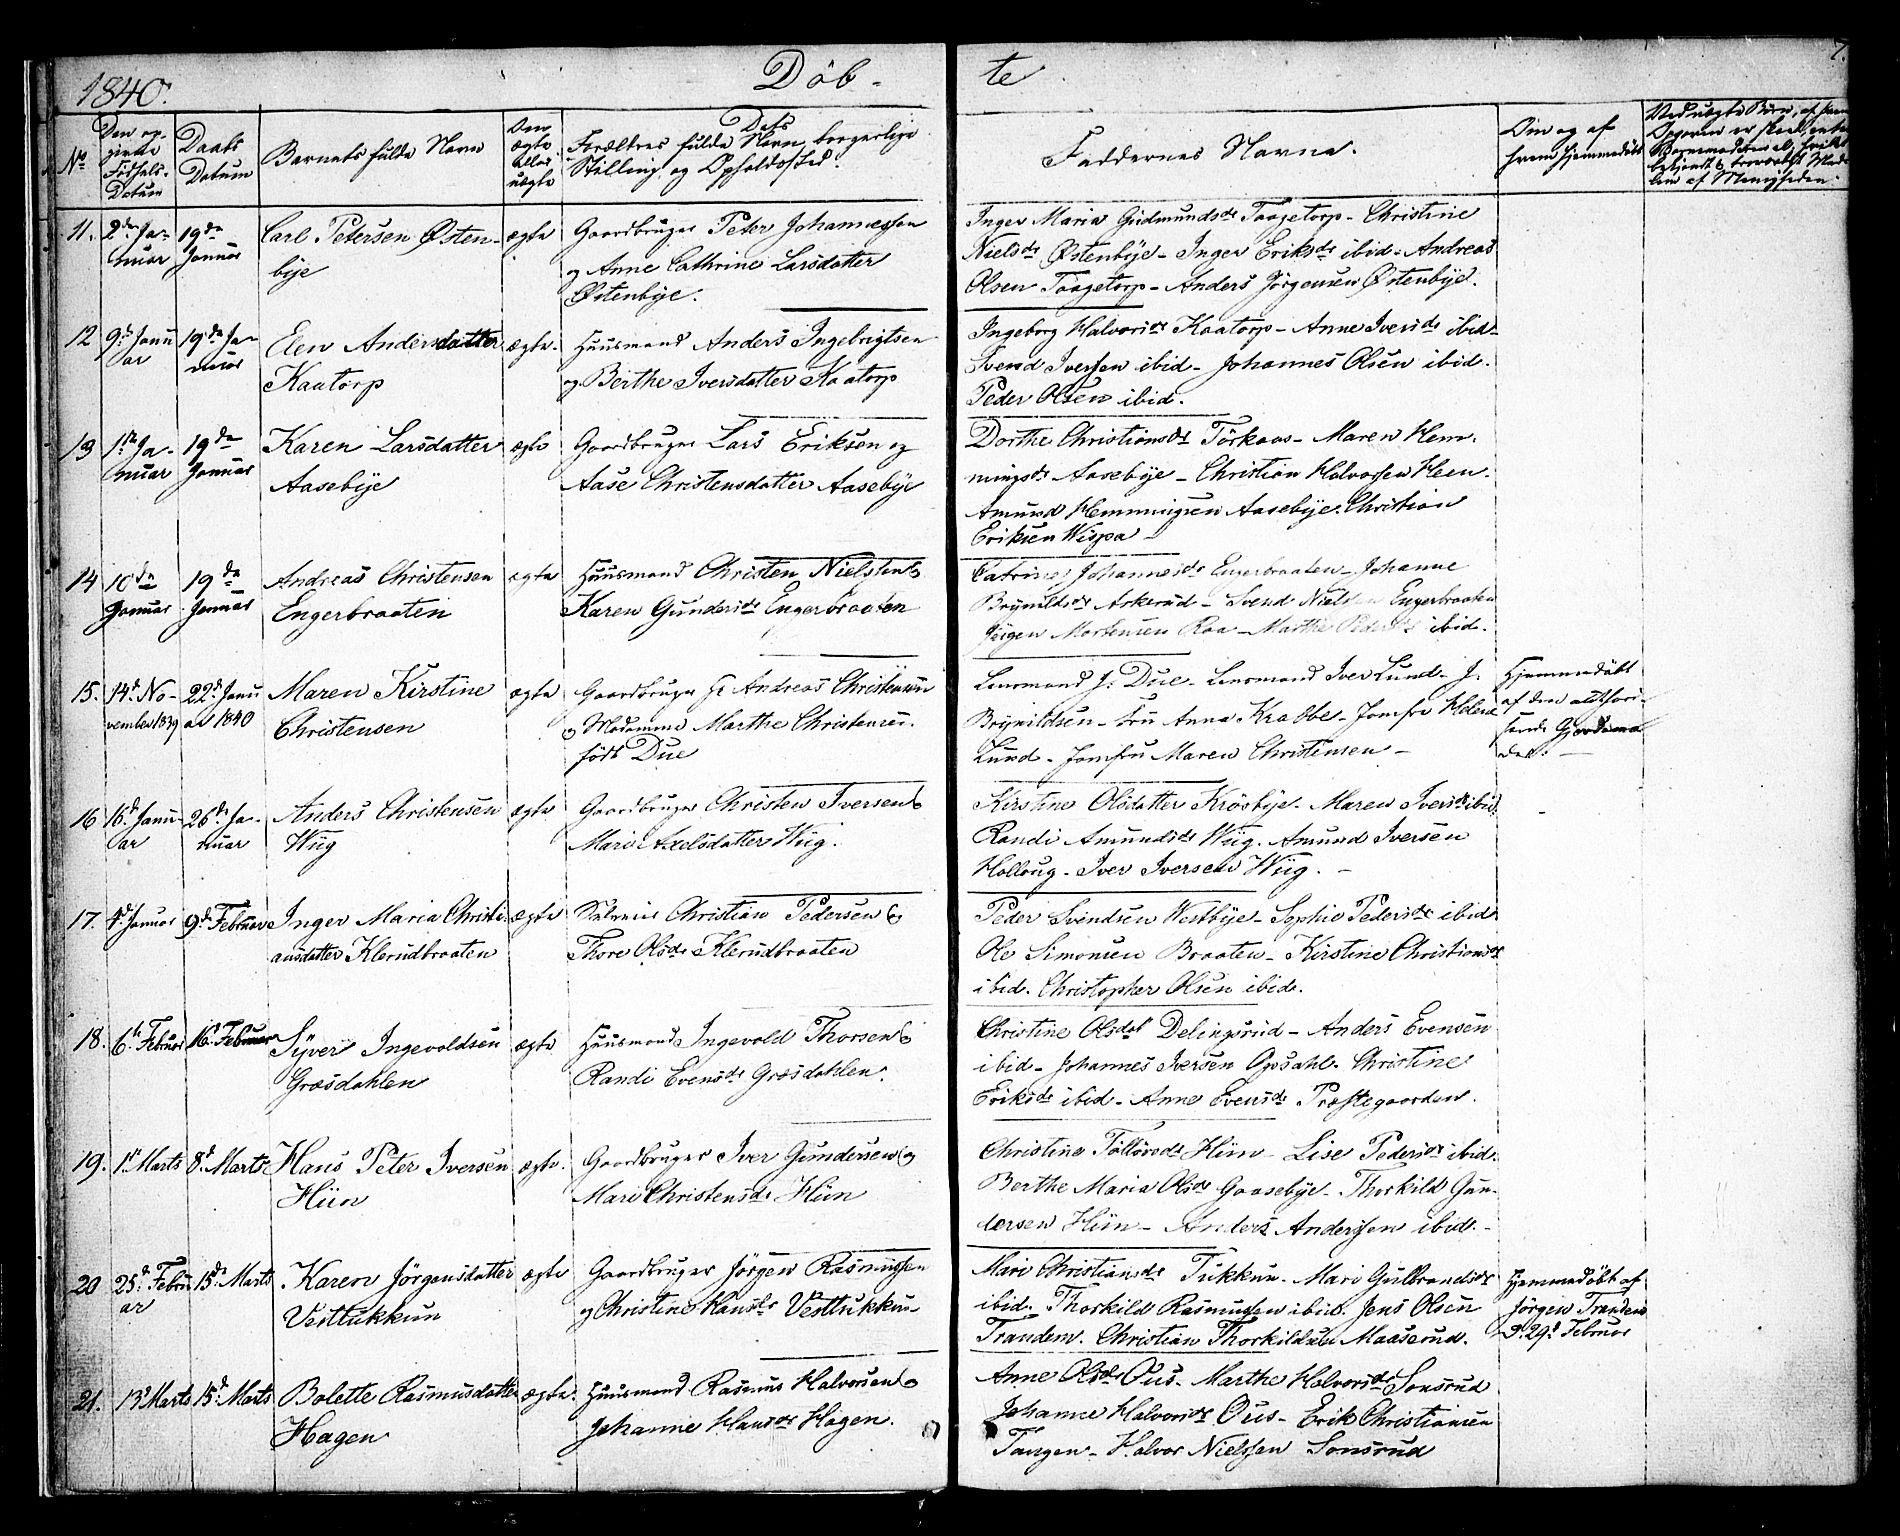 1840.
Döb-
te
7.
No
Den op-
givne
Födsels-
Datum
Daabs
Datum
Barnets fulde Navn
Om
ægte
eller
uægte
Dets
Forældres fulde Navn, borgerlige
Stilling og Opholdssted.
Faddernes Navne.
Om og af
hvem hjemmedöbt
11.
2den Ja-
nuar
19de
Januar
Carl Petersen Østen-
bÿe
ægte
Gaardbruger Peter Johannessen
og Anne Cathrine Larsdatter
Østenbÿe.
Inger Maria Gudmundsdr Taagetorp - Christine
Nielsdr Østenbÿe - Inger Eriksdr ibid - Andreas
Olsen Taagetorp - Anders Jörgensen Østenbÿe.
12
9de Janu
ar
19de Ja-
nuar
Elen Andersdatter
Kaatorp
ægte.
Huusmand Anders Ingebrigtsen
og Berthe Iversdatter Kaatorp
Ingeborg Halvorsdr Kaatorp - Anne Iversdr ibid -
Svend Iversen ibid - Johannes Olsen ibid.
Peder Olsen ibid.
13
1ste Ja-
nuar
19de
Januar
Karen Larsdatter
Aasebÿe
ægte
Gaardbruger Lars Eriksen og
Aase Christensdatter Aasebÿe
Dorthe Christiansdr Törkaas - Maren Hem-
mingsdr Aasebÿe - Christian Halvorsen Heen.
Amund Hemmingsen Aasebÿe. Christian
Eriksen Wispa -
14
10de
Januar
19de
Januar
Andreas Christensen
Engerbraaten
ægte
Huusmand Christen Nielssen &
Karen Gundersdr Engerbraaten
Catrine Johannesdr Engerbraaten - Johanne
Brÿnildsdr Askerud - Svend Nielsen Engerbraaten
Jörgen Mortensen Raa - Marthe Pedersdr ibid.
15.
14d No-
vember 1839
22d Janu
ar 1840
Maren Kirstine
Christensen
ægte
Gaardbruger Andreas Christensen
og Madamme Marthe Christensen.
födt Due
Lensmand J. Due - Lensmand Iver Lund - J.
Brÿnildsen - Fru Anna Krabbe - Jomfru Helene
Lund - Jomfru Maren Christensen -
Hjemmedöbt
af den
16
16d Janu-
ar
26de Ja-
nuar
Anders Christensen
Wiig
ægte
Gaardbruger Christen Iversen &
Mari Axelsdatter Wiig.
Kirstine Olsdatter Krösbÿe - Maren Iversdr ibid.
Randi Amundsdr Wiig. Amund Iversen
Holloug - Iver Iversen Wiig. -
17.
4d Januar
9d Februar
Inger Maria Christi-
ansdatter Klerudbraaten
ægte
Christian Pedersen &
Thore Olsdr Klerudbraaten
Peder Svendsen Westbÿe - Sophie Pedersdr ibid
Ole Simonsen Braaten - Kirstine Christiansdr
ibid. Christopher Olsen ibid.
18.
6te Februar
16de Februar
Sÿver Ingevoldsen
Græsdahlen
ægte
Huusmand Ingevold Thorsen &
Randi Evensdr Græsdahlen.
Christine Olsdat Delingsrud - Anders Evensen
ibid - Johannes Iversen Opsahl - Christine
Eriksdr ibid - Anne Evensdr Præstegaarden.
19.
1st Marts
8d Marts
Hans Peter Iversen
Hün
ægte.
Gaardbruger Iver Gundersen og
Mari Christensdr Hün
Christine Tollövsdr Hün - Lise Pedersdr ibid.
Berthe Maria Olsdr Gaasebÿe - Thorkild Gun-
dersen Hün - Anders Andersen ibid. -
20
25d Febru
ar
15de Marts
Karen Jörgensdatter
Vesttukkun
ægte
Gaardbruger Jörgen Rasmussen
og Christine Hansdr Vesttukkun
Mari Christiansdr Tukkun - Mari Gulbrandsdr
ibid. Thorkild Rasmussen ibid. Jens Olsen
Trandem. Christian Thorkildsen Maaserud.
Hjemmedöbt af
Jörgen Trandem
d. 29d Februar
21.
13d Marts
15d Marts
Bolette Rasmusdatter
Hagen
ægte.
Huusmand Rasmus Halvorsen &
Johanne Hansdr Hagen.
Anne Olsdr Ous - Marthe Halvorsdr Sonsrud
Johanne Halvorsdr Ous - Erik Christiansen
Tangen - Halvor Nielssen Sonsrud